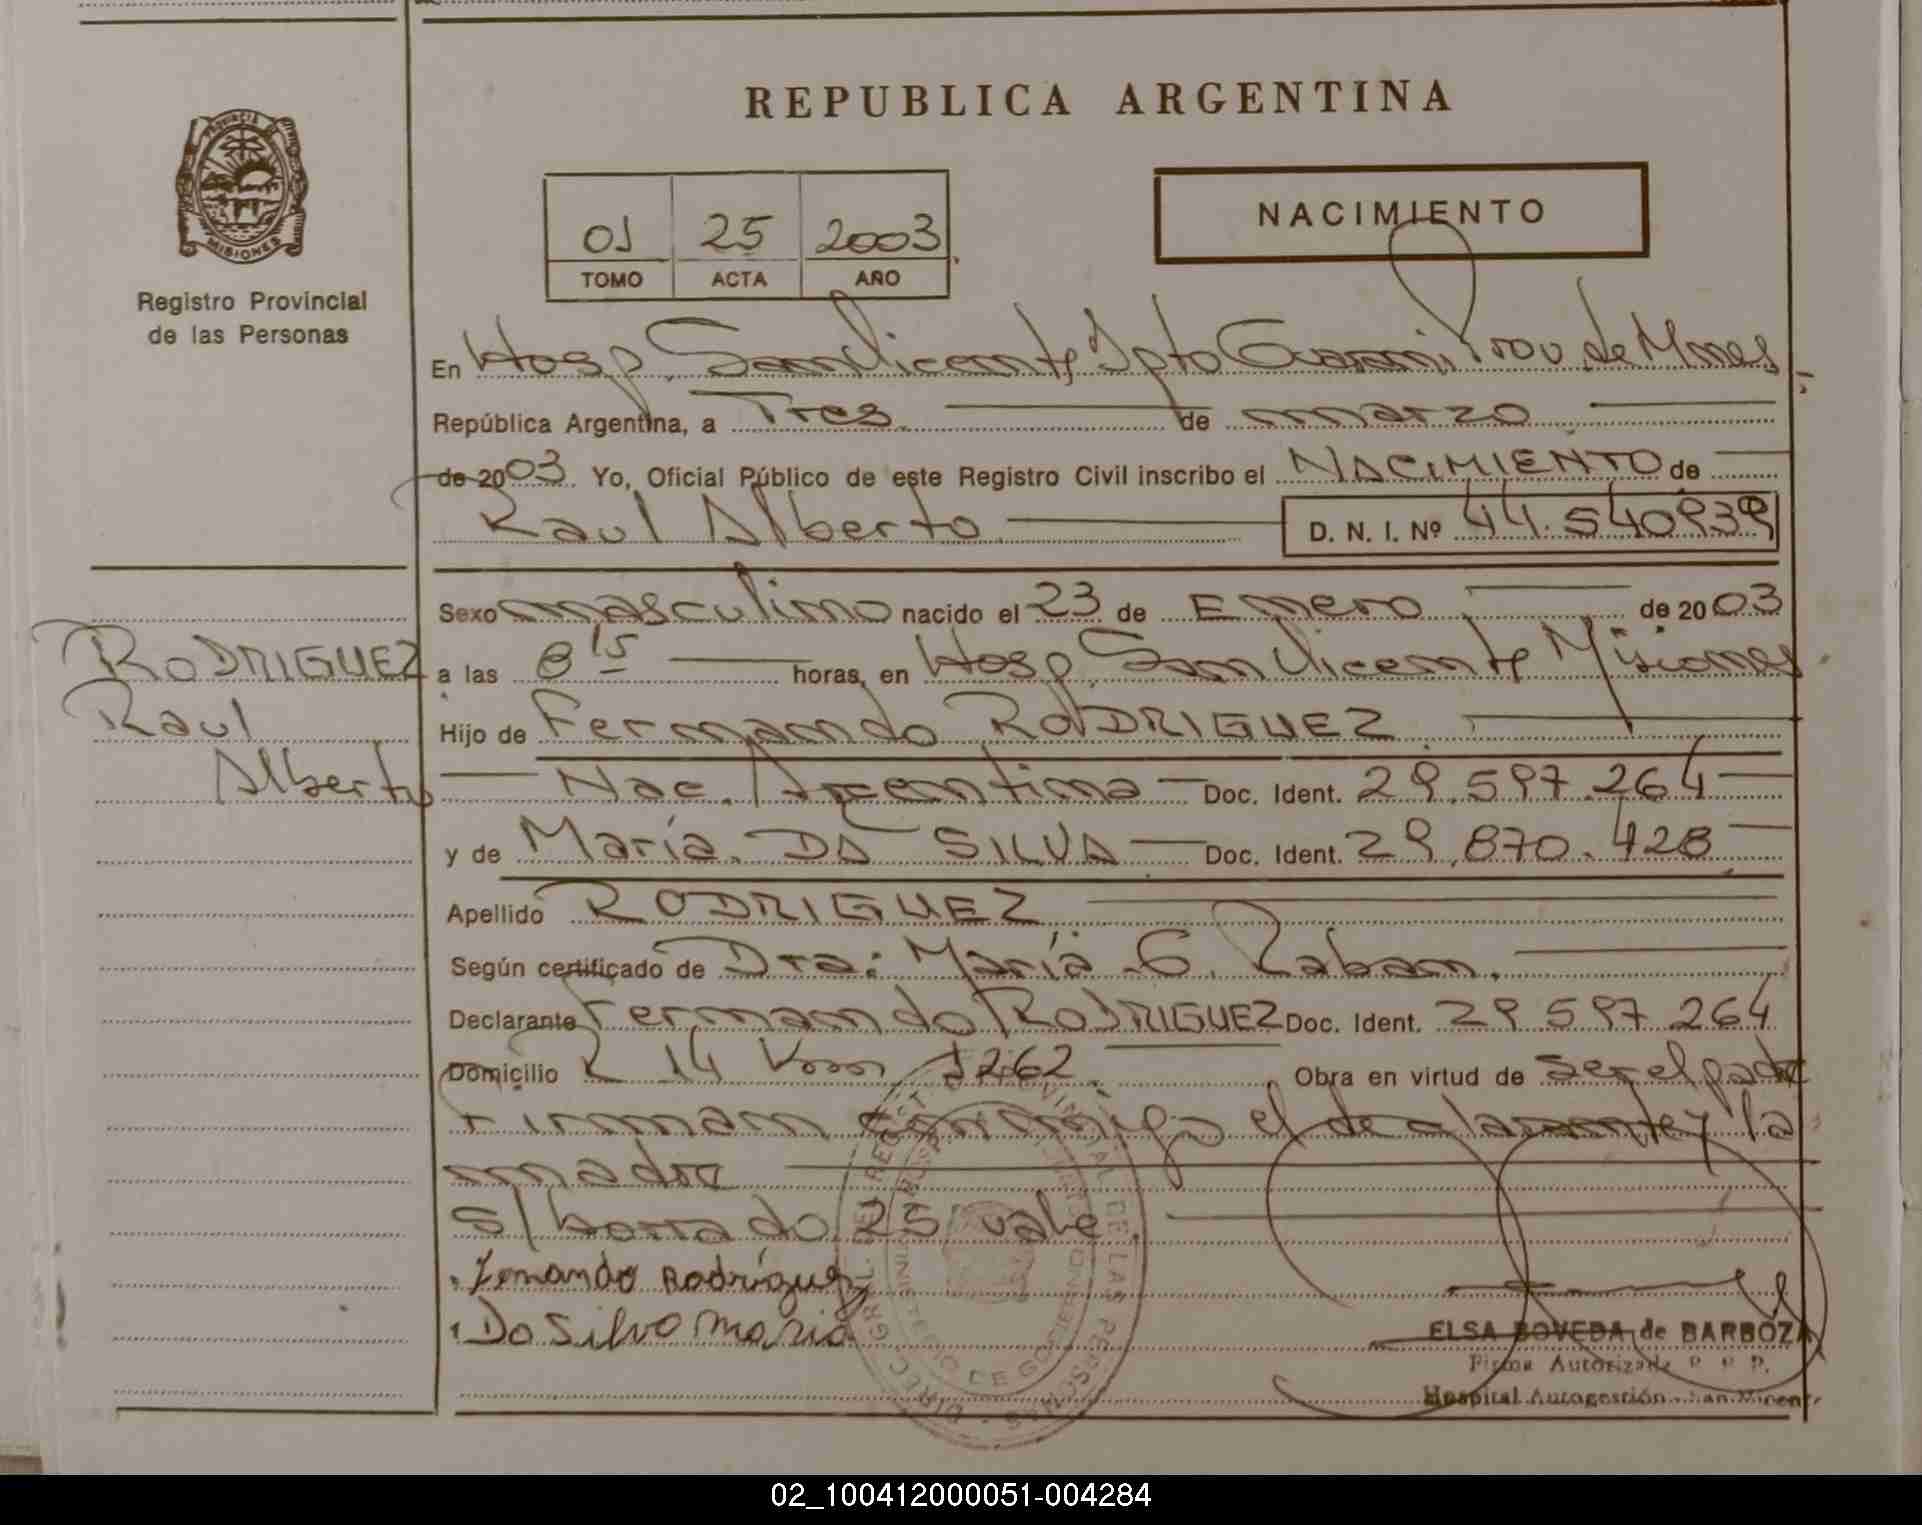 REPUBLICA ARGENTINA
PROVINCIA DE
MISIONES
Registro Provincial
de las Personas
01 25 2003
TOMO ACTA AÑO
NACIMIENTO
En Hosp. San Vicente, Dpto Guarani Prov. de Mnes
República Argentina, a Tres de marzo
de 2003. Yo, Oficial Público de este Registro Civil inscribo el NACIMIENTO de
Raul Alberto D. N. I. Nº 44.540939
Sexo masculino nacido el 23 de Enero de 2003
RODRIGUEZ
Raul
Alberto
a las 8 15 horas, en Hosp. San Vicente Misiones
Hijo de Fernando RODRIGUEZ.
Nac. Argentina Doc. Ident. 29.597.264
y de María DA SILVA Doc. Ident. 29.870.428
Apellido RODRIGUEZ
Según certificado de Dra: María G.
Declarante Fernando RODRIGUEZ Doc. Ident. 29 597 264
Domicilio R 14 Km 1262. Obra en virtud de ser el padre
Firman conmigo el declarante y la
madre
s/ borrado 25 vale.
Fernando Rodríguez
Da Silva Maria
ELSA BOVEDA de BARBOZA
Firma Autorizada R. P. P.
Hospital Autogestión - San Vicente
02_100412000051-004284